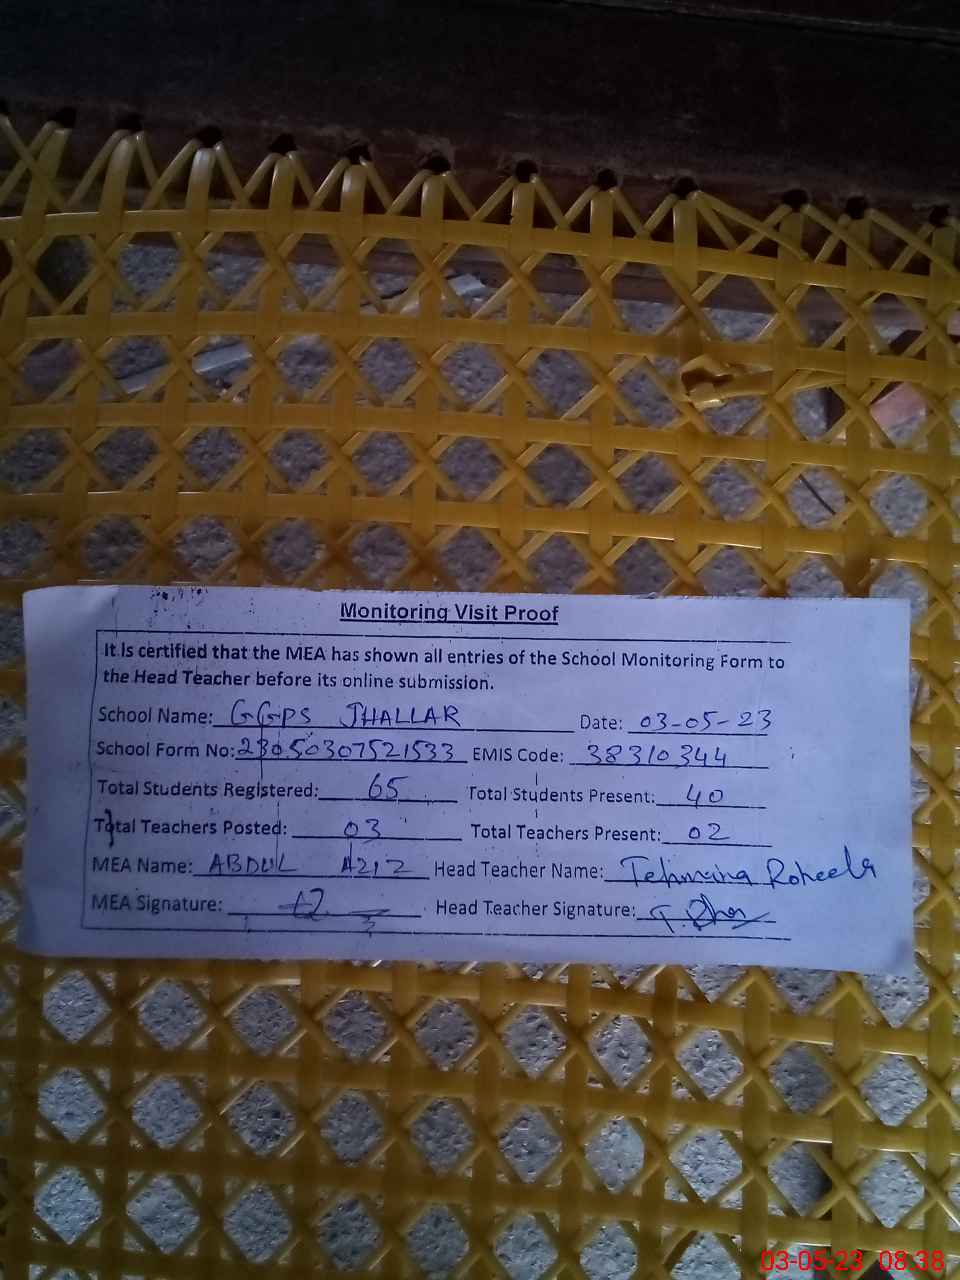 Monitoring Visit Proof
It is certified that the MEA has shown all entries of the School Monitoring Form to
the Head Teacher before its online submission.
School Name: GGPS JHALLAR Date: 03-05-23
School Form No: 23050307521533 EMIS Code: 38310344
Total Students Registered: 65 Total Students Present: 40
Total Teachers Posted: 03 Total Teachers Present: 02
MEA Name: ABDUL AZIZ Head Teacher Name: Tehmina
MEA Signature: Head Teacher Signature:
03-05-23 08:38